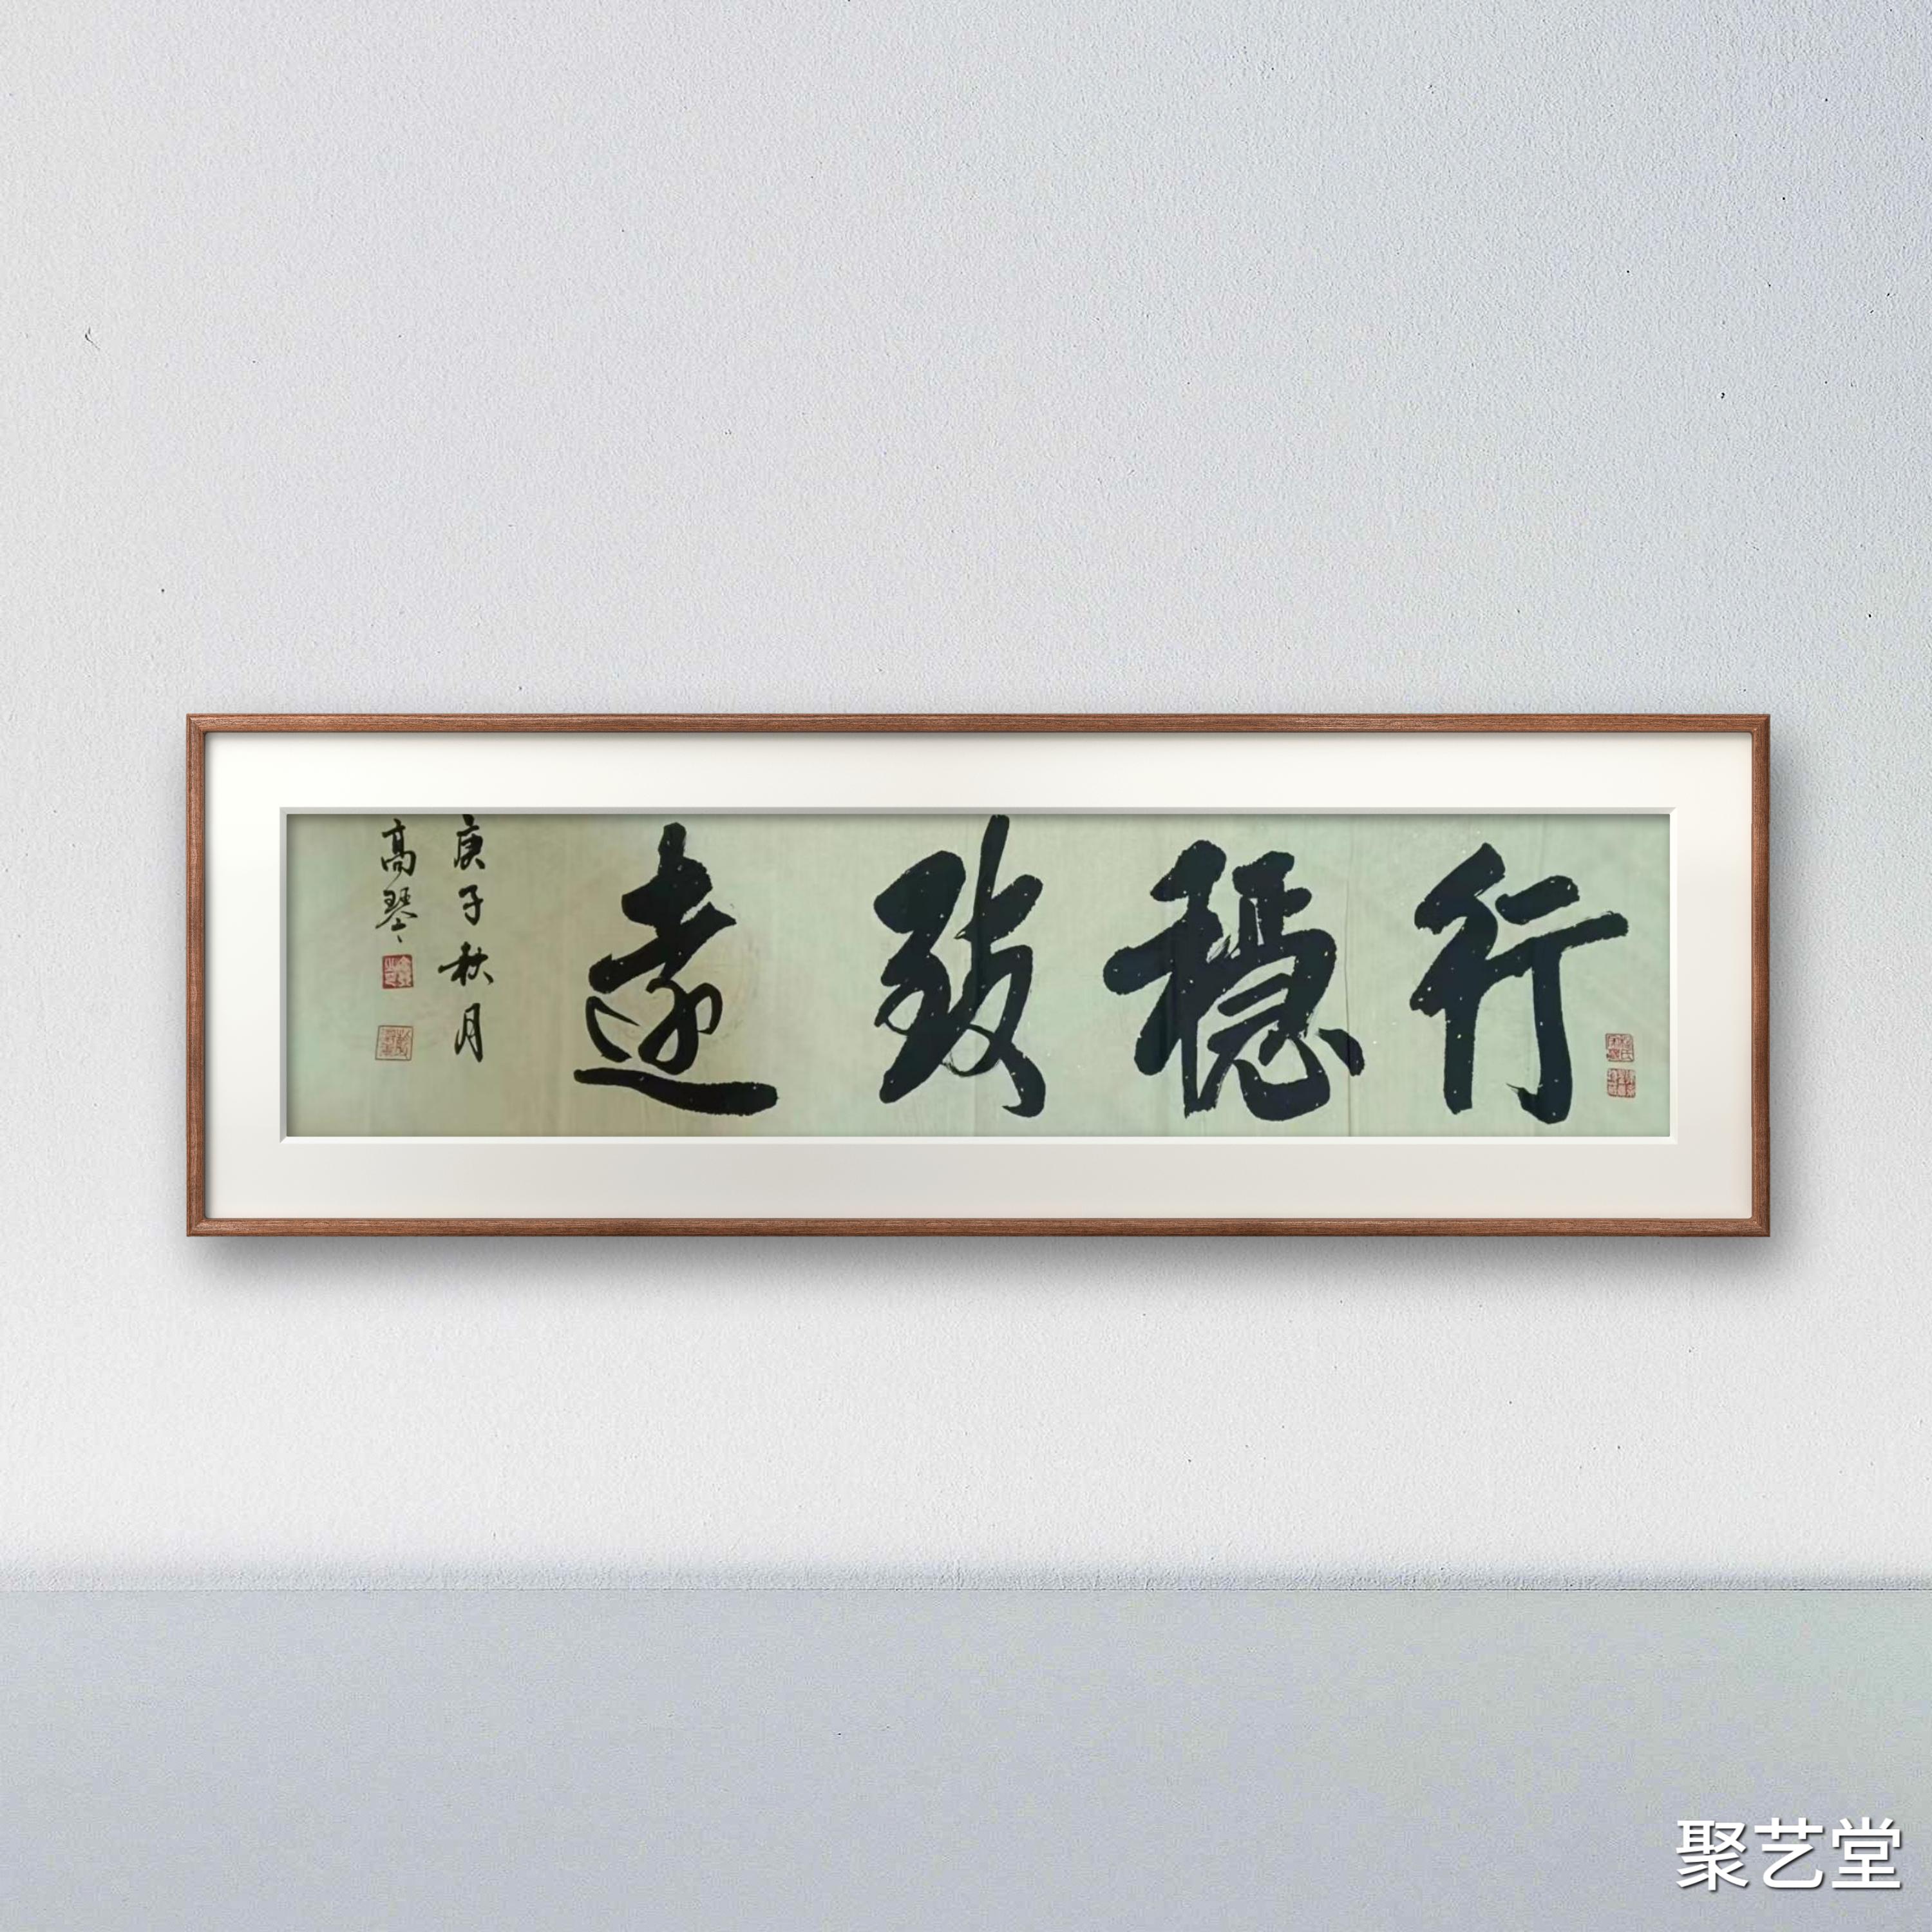 行穩致遠
庚子秋月
高琴
聚艺堂